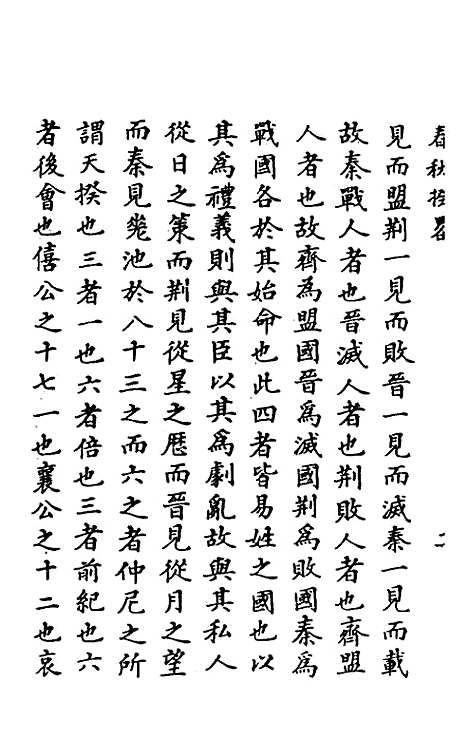 春秋揆畧
二
見而盟荆一見而敗晉一見而滅秦一見而載
故秦戰人者也晉滅人者也荆敗人者也齊盟
人者也故齊為盟國晉為滅國荆為敗國秦為
戰國各於其始命也此四者皆易姓之國也以
其為禮義則與其臣以其為劇亂故與其私人
從日之策而荆見從星之厯而晉見從月之望
而秦見瓫池於八十三之而六之者仲尼之所
謂天揆也三者一也六者倍也三者前紀也六
者後會也僖公之十七一也襄公之十二也哀